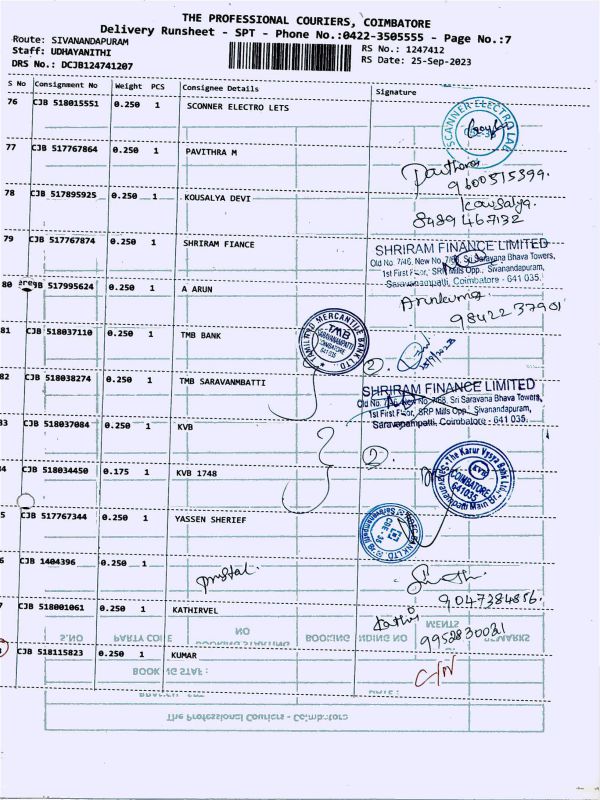 THE PROFESSIONAL COURIERS, COIMBATORE
Delivery Runsheet - SPT - Phone No.:0422-3505555 - Page No.:7
Route: SIVANANDAPURAM
Staff: UDHAYANITHI
RS No.: 1247412
DRS No.: DCJB124741207
RS Date: 25-Sep-2023
S No Consignment No Weight PCS Consignee Details Signature
76 CJB 518015551 0.250 1 SCONNER ELECTRO LETS
SCANNER ELECTRO LAB
77 CJB 517767864 0.250 1 PAVITHRA M
9600515399.
78 CJB 517895925 0.250 1 KOUSALYA DEVI
Kousalya.
8489467132
79 CJB 517767874 0.250 1 SHRIRAM FIANCE
SHRIRAM FINANCE LIMITED
Old No. 7/46, New No. 7/68, Sri Saravana Bhava Towers,
1st First Floor, SRP Mills Opp., Sivanandapuram,
Saravanampatti, Coimbatore - 641 035.
80 CJB 517995624 0.250 1 A ARUN
Arunkumar
9842237901
81 CJB 518037110 0.250 1 TMB BANK
TAMILNAD MERCANTILE BANK LTD.
TMB
SARAVANAMPATTI
COIMBATORE
2.
82 CJB 518038274 0.250 1 TMB SARAVANMBATTI
SHRIRAM FINANCE LIMITED
Old No. 7/46, New No. 7/68, Sri Saravana Bhava Towers,
1st First Floor, SRP Mills Opp., Sivanandapuram,
Saravanampatti, Coimbatore - 641 035.
83 CJB 518037084 0.250 1 KVB
2.
The Karur Vysya Bank Ltd.
KVB
COIMBATORE
641035
Saravanampatti Main Br.
4 CJB 518034450 0.175 1 KVB 1748
5 CJB 517767344 0.250 1 YASSEN SHERIEF
HDFC BANK LTD
6 CJB 1404396 0.250 1
9047384856.
7 CJB 518001061 0.250 1 KATHIRVEL
Kathir
9952830021
S.NO PARTY CODE NO BOOKING REMARKS
CJB 518115823 0.250 1 KUMAR
C/N
BOOKING STAF :
DATE :
The Professional Couriers - Coimbatore